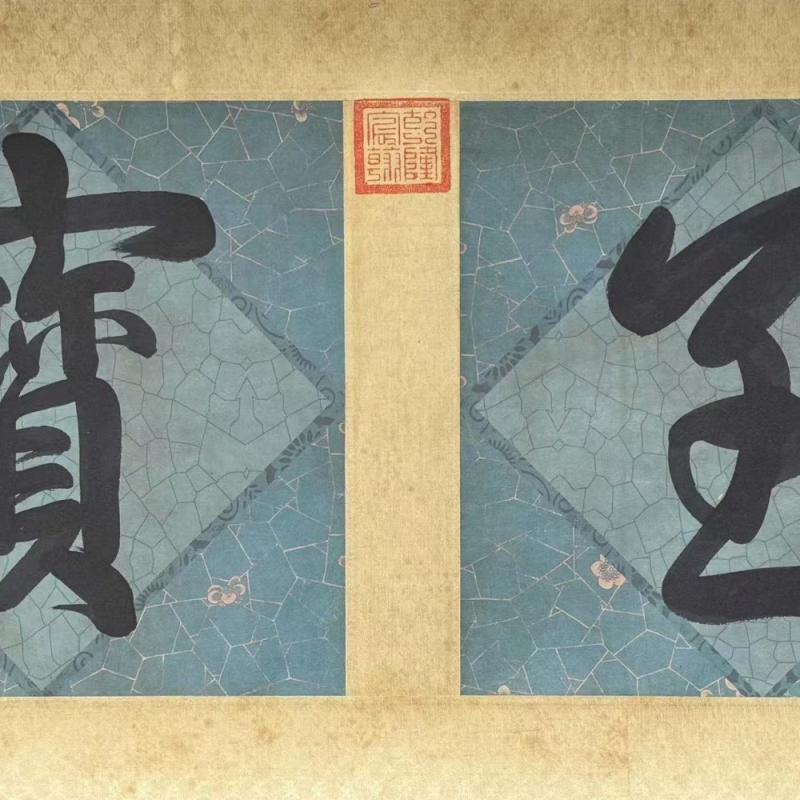 至
乾隆
宸翰
寶